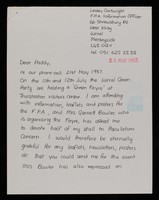 Lesley Cartwright
F.P.A. Information Officer
Shrewsbury Rd
West Kirby
Wirral
Merseyside
tel. 051 625
Dear Paddy,
Re our phone call 21st May 1987.
On the 11th and 12th July the Wirral Green
Party are holding a 'Green Fayre' at
Thurstaston visitors centre. I am attending
with information, leaflets and posters for
the F.P.A., and Mrs Garnett Bowles, who
is organising the Fayre, has asked me
to donate half of my stall to Population
Concern. I would therefore be eternally
grateful for any leaflets, newsletters, posters
etc that you could send me for the event.
Mrs Bowles has also expressed an